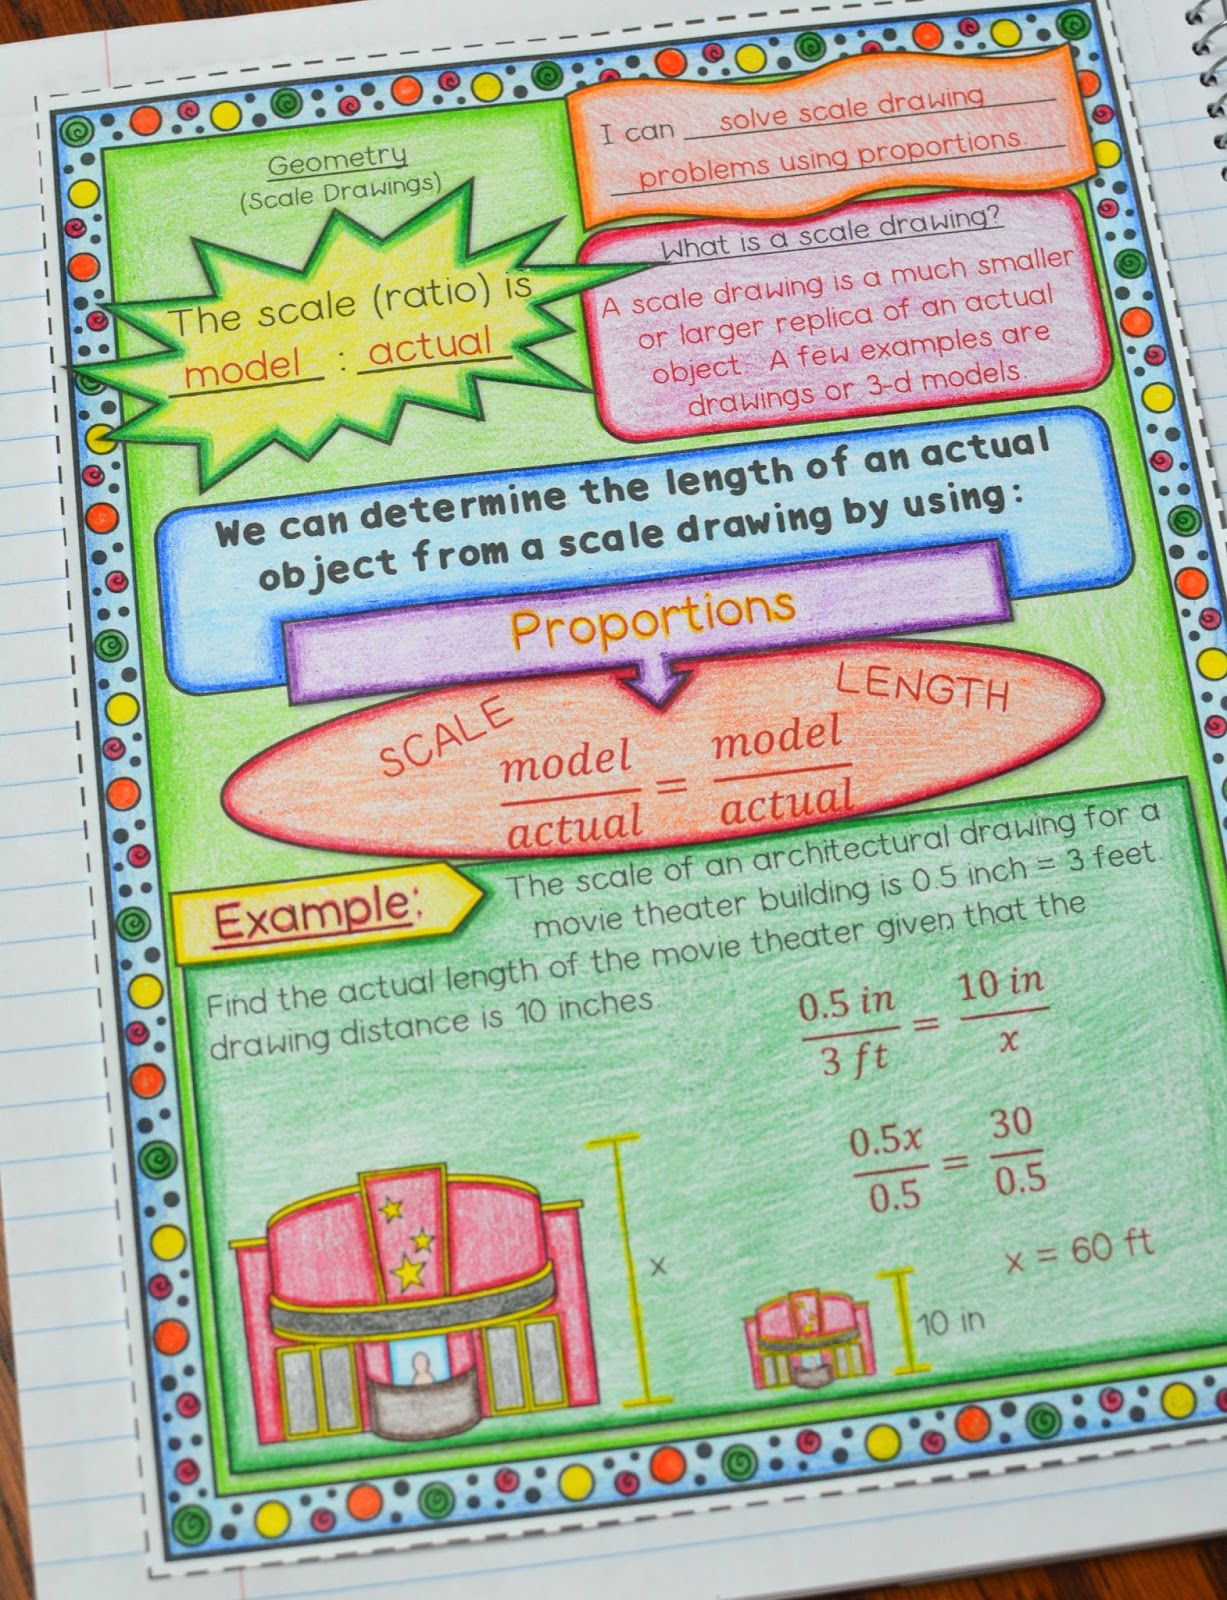 Geometry
(Scale Drawings)
I can solve scale drawing
problems using proportions.
The scale (ratio) is
model : actual
What is a scale drawing?
A scale drawing is a much smaller
or larger replica of an actual
object. A few examples are
drawings or 3-d models.
We can determine the length of an actual
object from a scale drawing by using:
Proportions
SCALE LENGTH
model/actual = model/actual
Example:
The scale of an architectural drawing for a
movie theater building is 0.5 inch = 3 feet.
Find the actual length of the movie theater given that the
drawing distance is 10 inches.
0.5 in/3 ft = 10 in/x
0.5x/0.5 = 30/0.5
x = 60 ft
x
10 in